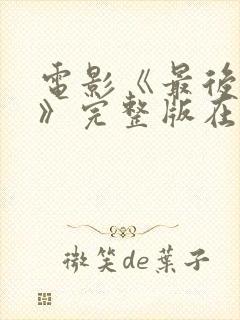 電影《最後
》完整版在
微笑de葉子